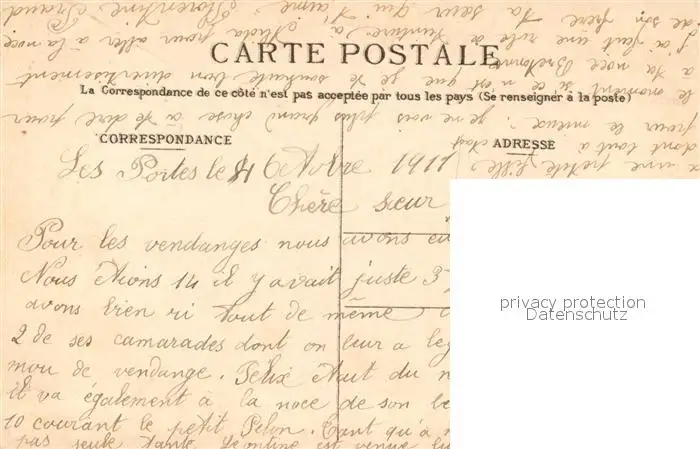 CARTE POSTALE
La Correspondance de ce côté n'est pas acceptée par tous les pays (Se renseigner à la poste)
CORRESPONDANCE
ADRESSE
Les Portes le 4 Octobre 1911
Chère seur
Pour les vendanges nous avons eu
Nous étions 14 il y avait juste 3
avons bien ri tout de même
2 de ses camarades dont on leur a
mou de vendange. Félix était du
il va également à la noce de son
10 courant le petit Pelon. Tant qu'à
pas seule tante Léontine est venue
privacy protection
Datenschutz
une petite fille
dont tout a
pour le mieux. je ne vois plus grand chose a te dire pour
le moment si ce n'est que je te souhaite bon divertissement
a ta noce Bretonne
J'ai fait une robe de à Alida pour aller à la noce
de son frère. Ta sœur qui t'aime. Florentine